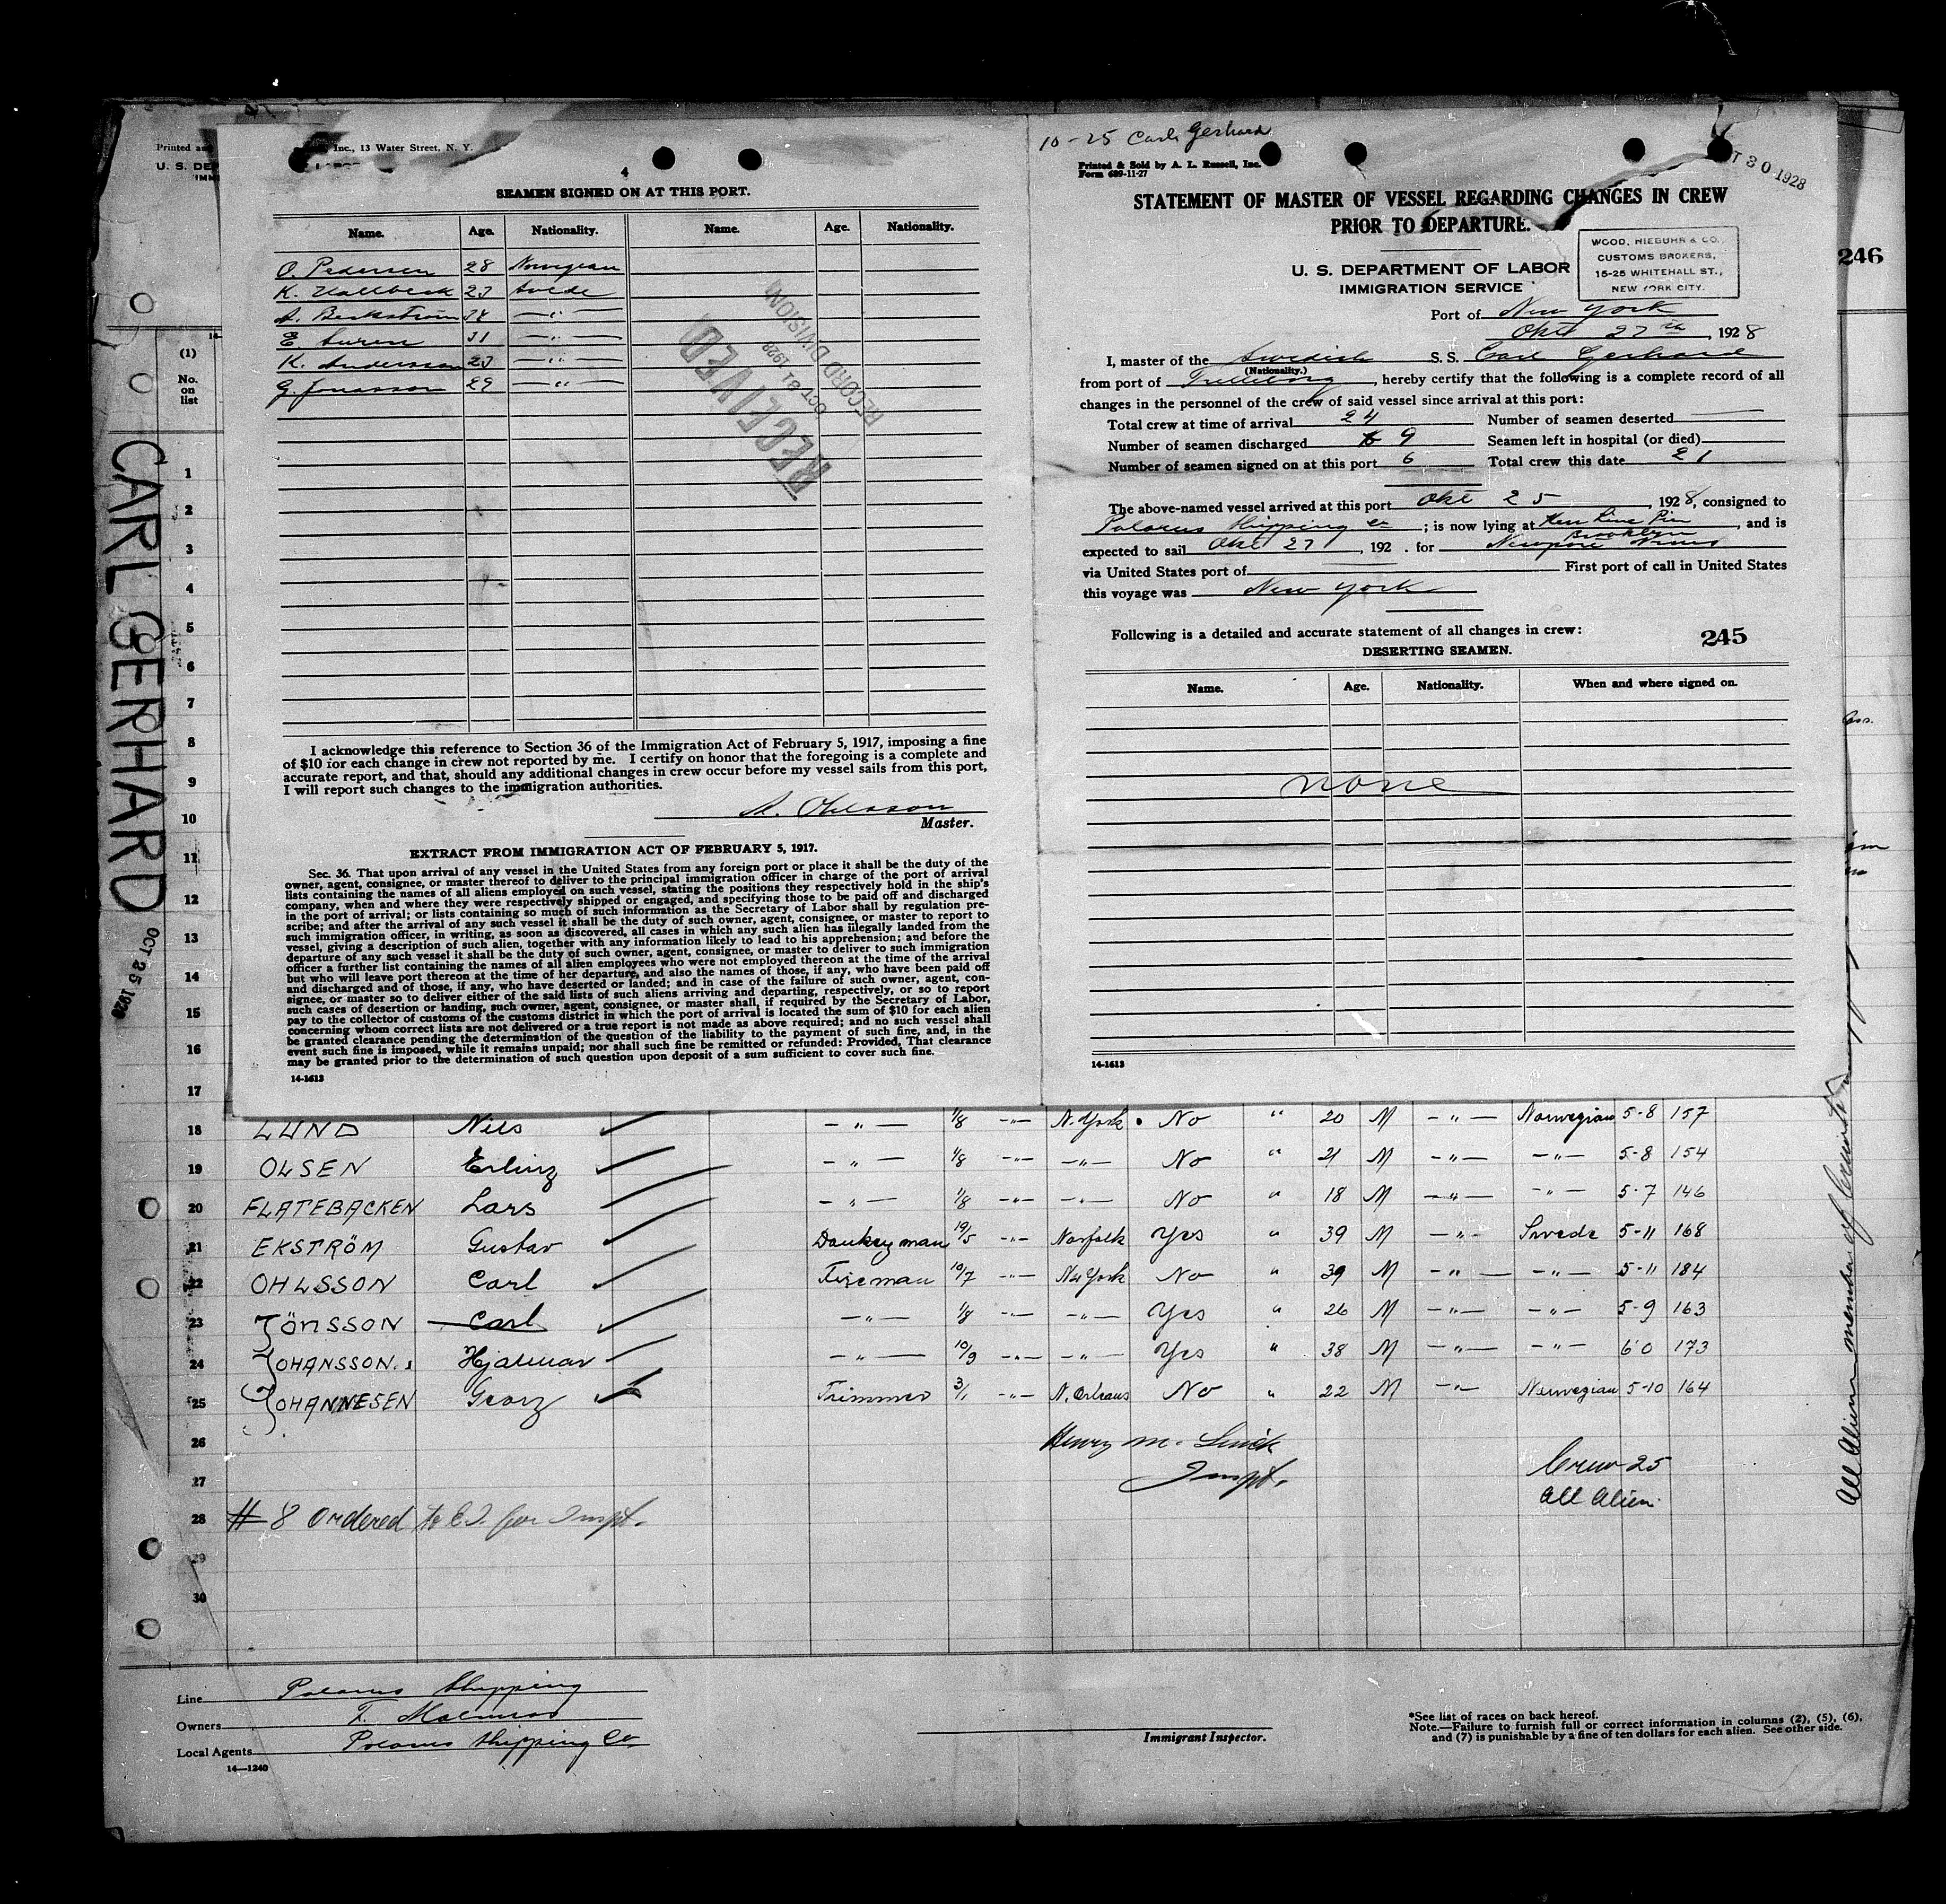 Printed and
Inc., 13 Water Street, N. Y.
U. S. DEP
4
SEAMEN SIGNED ON AT THIS PORT.
Name. Age. Nationality. Name. Age. Nationality.
O. Pedersen 28 Norwegian
K. Hallbeck 23 Swede
A. Berkström 34 — " —
E. Auren 31 — " —
K. Andersson 23 — " —
G. Jonasson 29 — " —
RECEIVED
OCT 31 1928
RECORD DIVISION
I acknowledge this reference to Section 36 of the Immigration Act of February 5, 1917, imposing a fine
of $10 for each change in crew not reported by me. I certify on honor that the foregoing is a complete and
accurate report, and that, should any additional changes in crew occur before my vessel sails from this port,
I will report such changes to the immigration authorities.
A. Ohlsson
Master.
EXTRACT FROM IMMIGRATION ACT OF FEBRUARY 5, 1917.
Sec. 36. That upon arrival of any vessel in the United States from any foreign port or place it shall be the duty of the
owner, agent, consignee, or master thereof to deliver to the principal immigration officer in charge of the port of arrival
lists containing the names of all aliens employed on such vessel, stating the positions they respectively hold in the ship's
company, when and where they were respectively shipped or engaged, and specifying those to be paid off and discharged
in the port of arrival; or lists containing so much of such information as the Secretary of Labor shall by regulation pre-
scribe; and after the arrival of any such vessel it shall be the duty of such owner, agent, consignee, or master to report to
such immigration officer, in writing, as soon as discovered, all cases in which any such alien has illegally landed from the
vessel, giving a description of such alien, together with any information likely to lead to his apprehension; and before the
departure of any such vessel it shall be the duty of such owner, agent, consignee, or master to deliver to such immigration
officer a further list containing the names of all alien employees who were not employed thereon at the time of the arrival
but who will leave port thereon at the time of her departure, and also the names of those, if any, who have been paid off
and discharged and of those, if any, who have deserted or landed; and in case of the failure of such owner, agent, con-
signee, or master so to deliver either of the said lists of such aliens arriving and departing, respectively, or so to report
such cases of desertion or landing, such owner, agent, consignee, or master shall, if required by the Secretary of Labor,
pay to the collector of customs of the customs district in which the port of arrival is located the sum of $10 for each alien
concerning whom correct lists are not delivered or a true report is not made as above required; and no such vessel shall
be granted clearance pending the determination of the question of the liability to the payment of such fine, and, in the
event such fine is imposed, while it remains unpaid; nor shall such fine be remitted or refunded: Provided, That clearance
may be granted prior to the determination of such question upon deposit of a sum sufficient to cover such fine.
14-1613
10-25 Carl Gerhard
Printed & Sold by A. L. Russell, Inc.
Form 689-11-27
T 30 1928
STATEMENT OF MASTER OF VESSEL REGARDING CHANGES IN CREW
PRIOR TO DEPARTURE.
WOOD, NIEBUHR & CO.,
CUSTOMS BROKERS,
15-25 WHITEHALL ST.,
NEW YORK CITY.
U. S. DEPARTMENT OF LABOR
IMMIGRATION SERVICE
Port of New York
Okt 27th, 1928
I, master of the Swedish S. S. Carl Gerhard
(Nationality.)
from port of Trelleborg, hereby certify that the following is a complete record of all
changes in the personnel of the crew of said vessel since arrival at this port:
Total crew at time of arrival 24 Number of seamen deserted
Number of seamen discharged 9 Seamen left in hospital (or died)
Number of seamen signed on at this port 6 Total crew this date 21
The above-named vessel arrived at this port Okt 25, 1928, consigned to
Polarus Shipping Co; is now lying at Kerr Line Pier Brooklyn, and is
expected to sail Okt 27, 192 . for Newport News
via United States port of First port of call in United States
this voyage was New York
Following is a detailed and accurate statement of all changes in crew:
245
DESERTING SEAMEN.
Name. Age. Nationality. When and where signed on.
none
14-1613
246
(1)
No.
on
list
CARL GERHARD
OCT 25 1928
1
2
3
4
5
6
7
8
9
10
11
12
13
14
15
16
17
18 LUND Nils — " — 1/8 — " — N. York No " 20 M — " — Norwegian 5-8 157
19 OLSEN Erling — " — 1/8 — " — — " — No " 21 M — " — — " — 5-8 154
20 FLATEBACKEN Lars — " — 1/8 — " — — " — No " 18 M — " — — " — 5-7 146
21 EKSTRÖM Gustav Donkeyman 19/5 — " — Norfolk Yes " 39 M — " — Swede 5-11 168
22 OHLSSON Carl Fireman 10/7 — " — New York No " 39 M — " — — " — 5-11 184
23 JÖNSSON Carl — " — 1/8 — " — — " — Yes " 26 M — " — — " — 5-9 163
24 JOHANSSON Hjalmar — " — 10/9 — " — — " — Yes " 38 M — " — — " — 6-0 173
25 JOHANNESEN Georg Trimmer 3/1 — " — N. Orleans No " 22 M — " — Norwegian 5-10 164
26
27
28
29
30
Henry M.
Inspt.
Crew 25
All Alien
# 8 Ordered to E.I. for Inspt.
All Alien members of crew
Line Polarus Shipping
Owners
Local Agents Polarus Shipping Co
14—1240
Immigrant Inspector.
*See list of races on back hereof.
Note.—Failure to furnish full or correct information in columns (2), (5), (6),
and (7) is punishable by a fine of ten dollars for each alien. See other side.